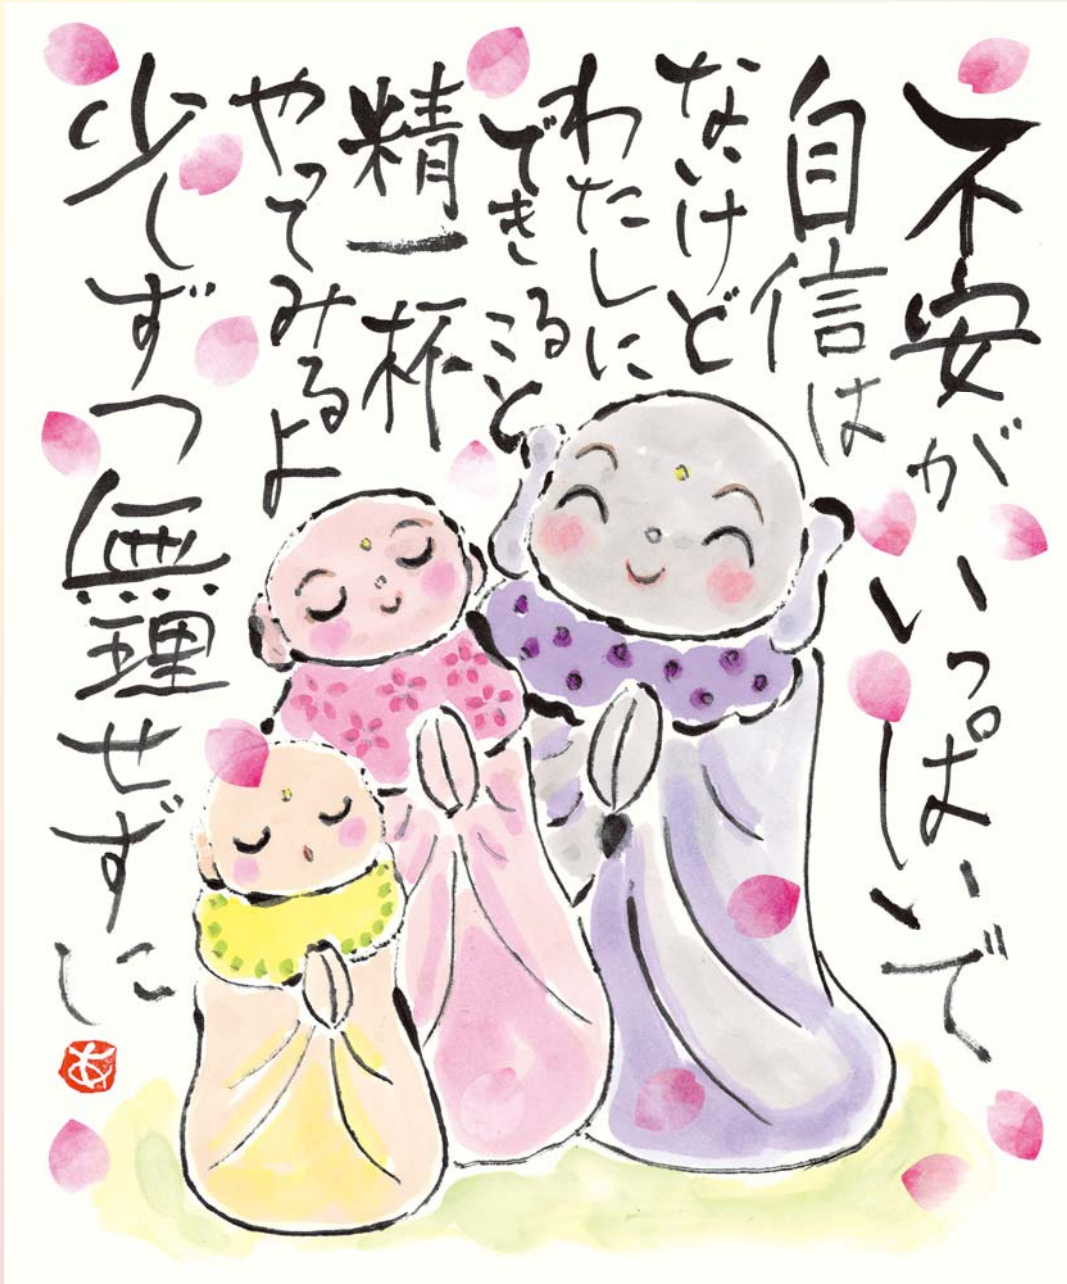 不安がいっぱいで
自信は
ないけど
わたしに
できること
精一杯
やってみるよ
少しずつ無理せずに